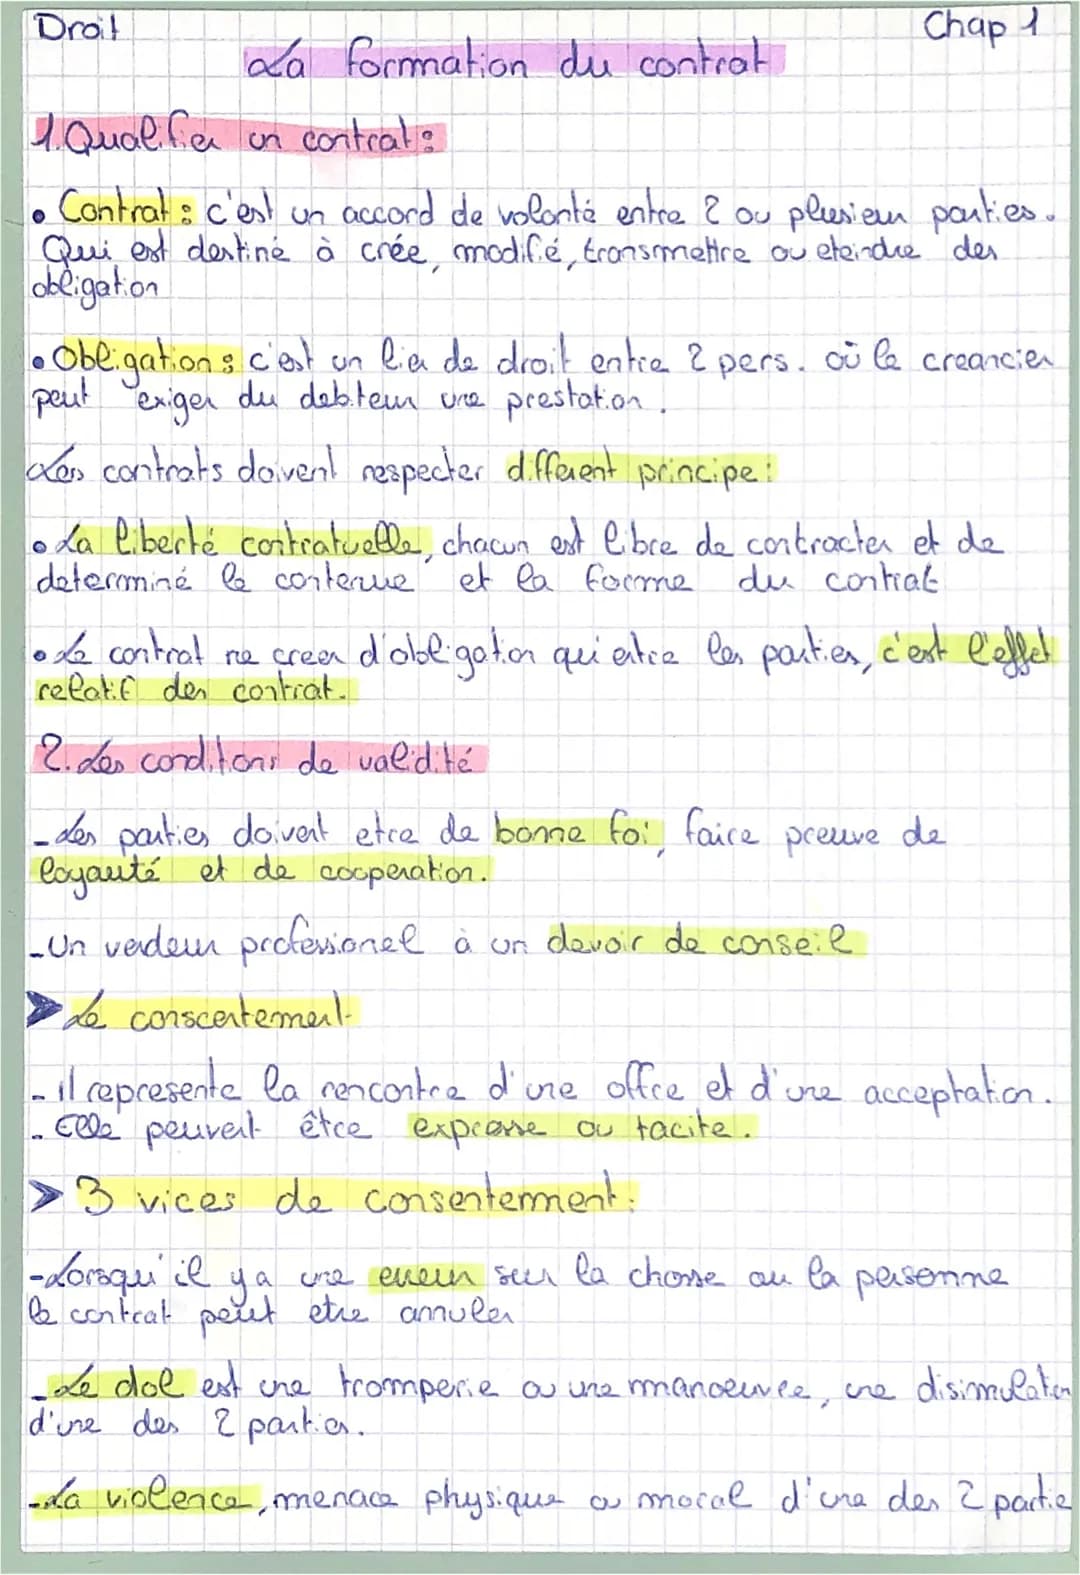 Droit Chap 1
La formation du contrat
1. Qualifier un contrat :
• Contrat : c'est un accord de volonté entre 2 ou plusieur parties.
Qui est destiné à crée, modifié, transmettre ou eteindre des
obligation
• Obligation : c'est un lien de droit entre 2 pers. où le creancier
peut exiger du debiteur une prestation.
Les contrats doivent respecter different principe :
• La liberté contratuelle, chacun est libre de contracter et de
determiné le contenue et la forme du contrat
• Le contrat ne creer d'obligation qui entre les parties, c'est l'effet
relatif des contrat.
2. Les conditions de validité
- Les parties doivent etre de bonne foi, faire preuve de
loyauté et de cooperation.
- Un vendeur professionel à un devoir de conseil
> Le conscentement
- il represente la rencontre d'une offre et d'une acceptation.
- Elle peuvent être expresse ou tacite.
> 3 vices de consentement :
- Lorsqu'il y a une erreur sur la chosse ou la personne
le contrat peut etre annuler
- Le dol est une tromperie ou une manoeuvre, une disimulation
d'une des 2 parties.
- La violence, menace physique ou moral d'une des 2 partie